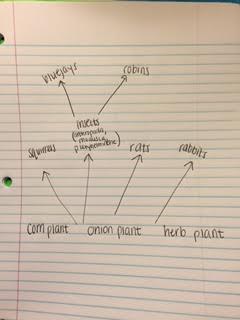 bluejays robins
insects
(arthropoda,
mollusca,
platyhelminthes)
squirrels rats rabbits
corn plant onion plant herb plant